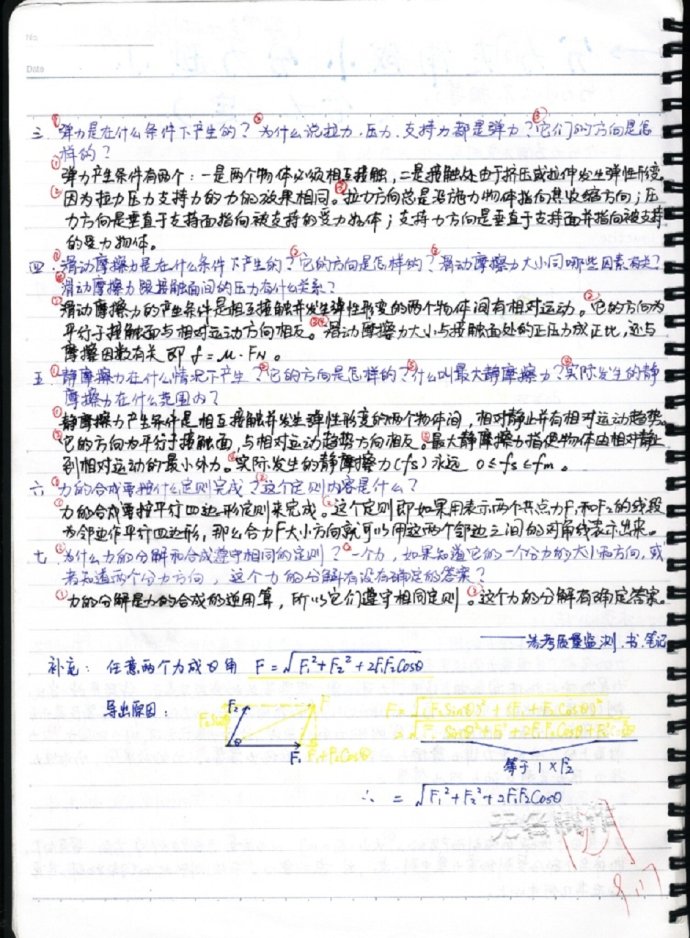 No.
Date
三 ①弹力是在什么条件下产生的？②为什么说拉力、压力、支持力都是弹力？③它们的方向是怎
样的？
①弹力产生条件有两个：一是两个物体必须相互接触，二是接触处由于挤压或拉伸发生弹性形变。
②因为拉力压力支持力的力的效果相同。③拉力方向总是沿施力物体指向其收缩方向；压
力方向是垂直于支持面指向被支持的受力物体；支持力方向是垂直于支持面并指向被支持
的受力物体。
四 ①滑动摩擦力是在什么条件下产生的？②它的方向是怎样的？③滑动摩擦力大小同哪些因素有关？
④滑动摩擦力跟接触面间的压力有什么关系？
①滑动摩擦力的产生条件是相互接触并发生弹性形变的两个物体间有相对运动。②它的方向为
平行于接触面与相对运动方向相反。③④滑动摩擦力大小与接触面处的正压力成正比，还与
摩擦因数有关 即 f = μ·FN 。
五 ①静摩擦力在什么情况下产生？②它的方向是怎样的？③什么叫最大静摩擦力？④实际发生的静
摩擦力在什么范围内？
①静摩擦力产生条件是相互接触并发生弹性形变的两个物体间，相对静止并有相对运动趋势。
②它的方向为平行于接触面，与相对运动趋势方向相反。③最大静摩擦力指使物体由相对静止
到相对运动的最小外力。④实际发生的静摩擦力（fs）永远 0≤fs≤fm 。
六 ①力的合成要按什么定则完成？②这个定则内容是什么？
①力的合成要按平行四边形定则来完成。②这个定则即如果用表示两个共点力F₁和F₂的线段
为邻边作平行四边形，那么合力F大小方向就可以用这两个邻边之间的对角线表示出来。
七 ①为什么力的分解和合成遵守相同的定则？②一个力，如果知道它的一个分力的大小和方向，或
者知道两个分力方向，这个力的分解有没有确定的答案？
①力的分解是力的合成的逆用算，所以它们遵守相同定则。②这个力的分解有确定答案。
——高考质量监测、书、笔记
补充： 任意两个力成θ角 F = √F₁²+F₂²+2F₁F₂Cosθ
导出原因：
F₂ F
F₂Sinθ
θ F₁ F₁+F₂Cosθ
F = √(F₂Sinθ)²+(F₁+F₂Cosθ)²
等于 1×F₂
∴ = √F₁²+F₂²+2F₁F₂Cosθ
无名制作